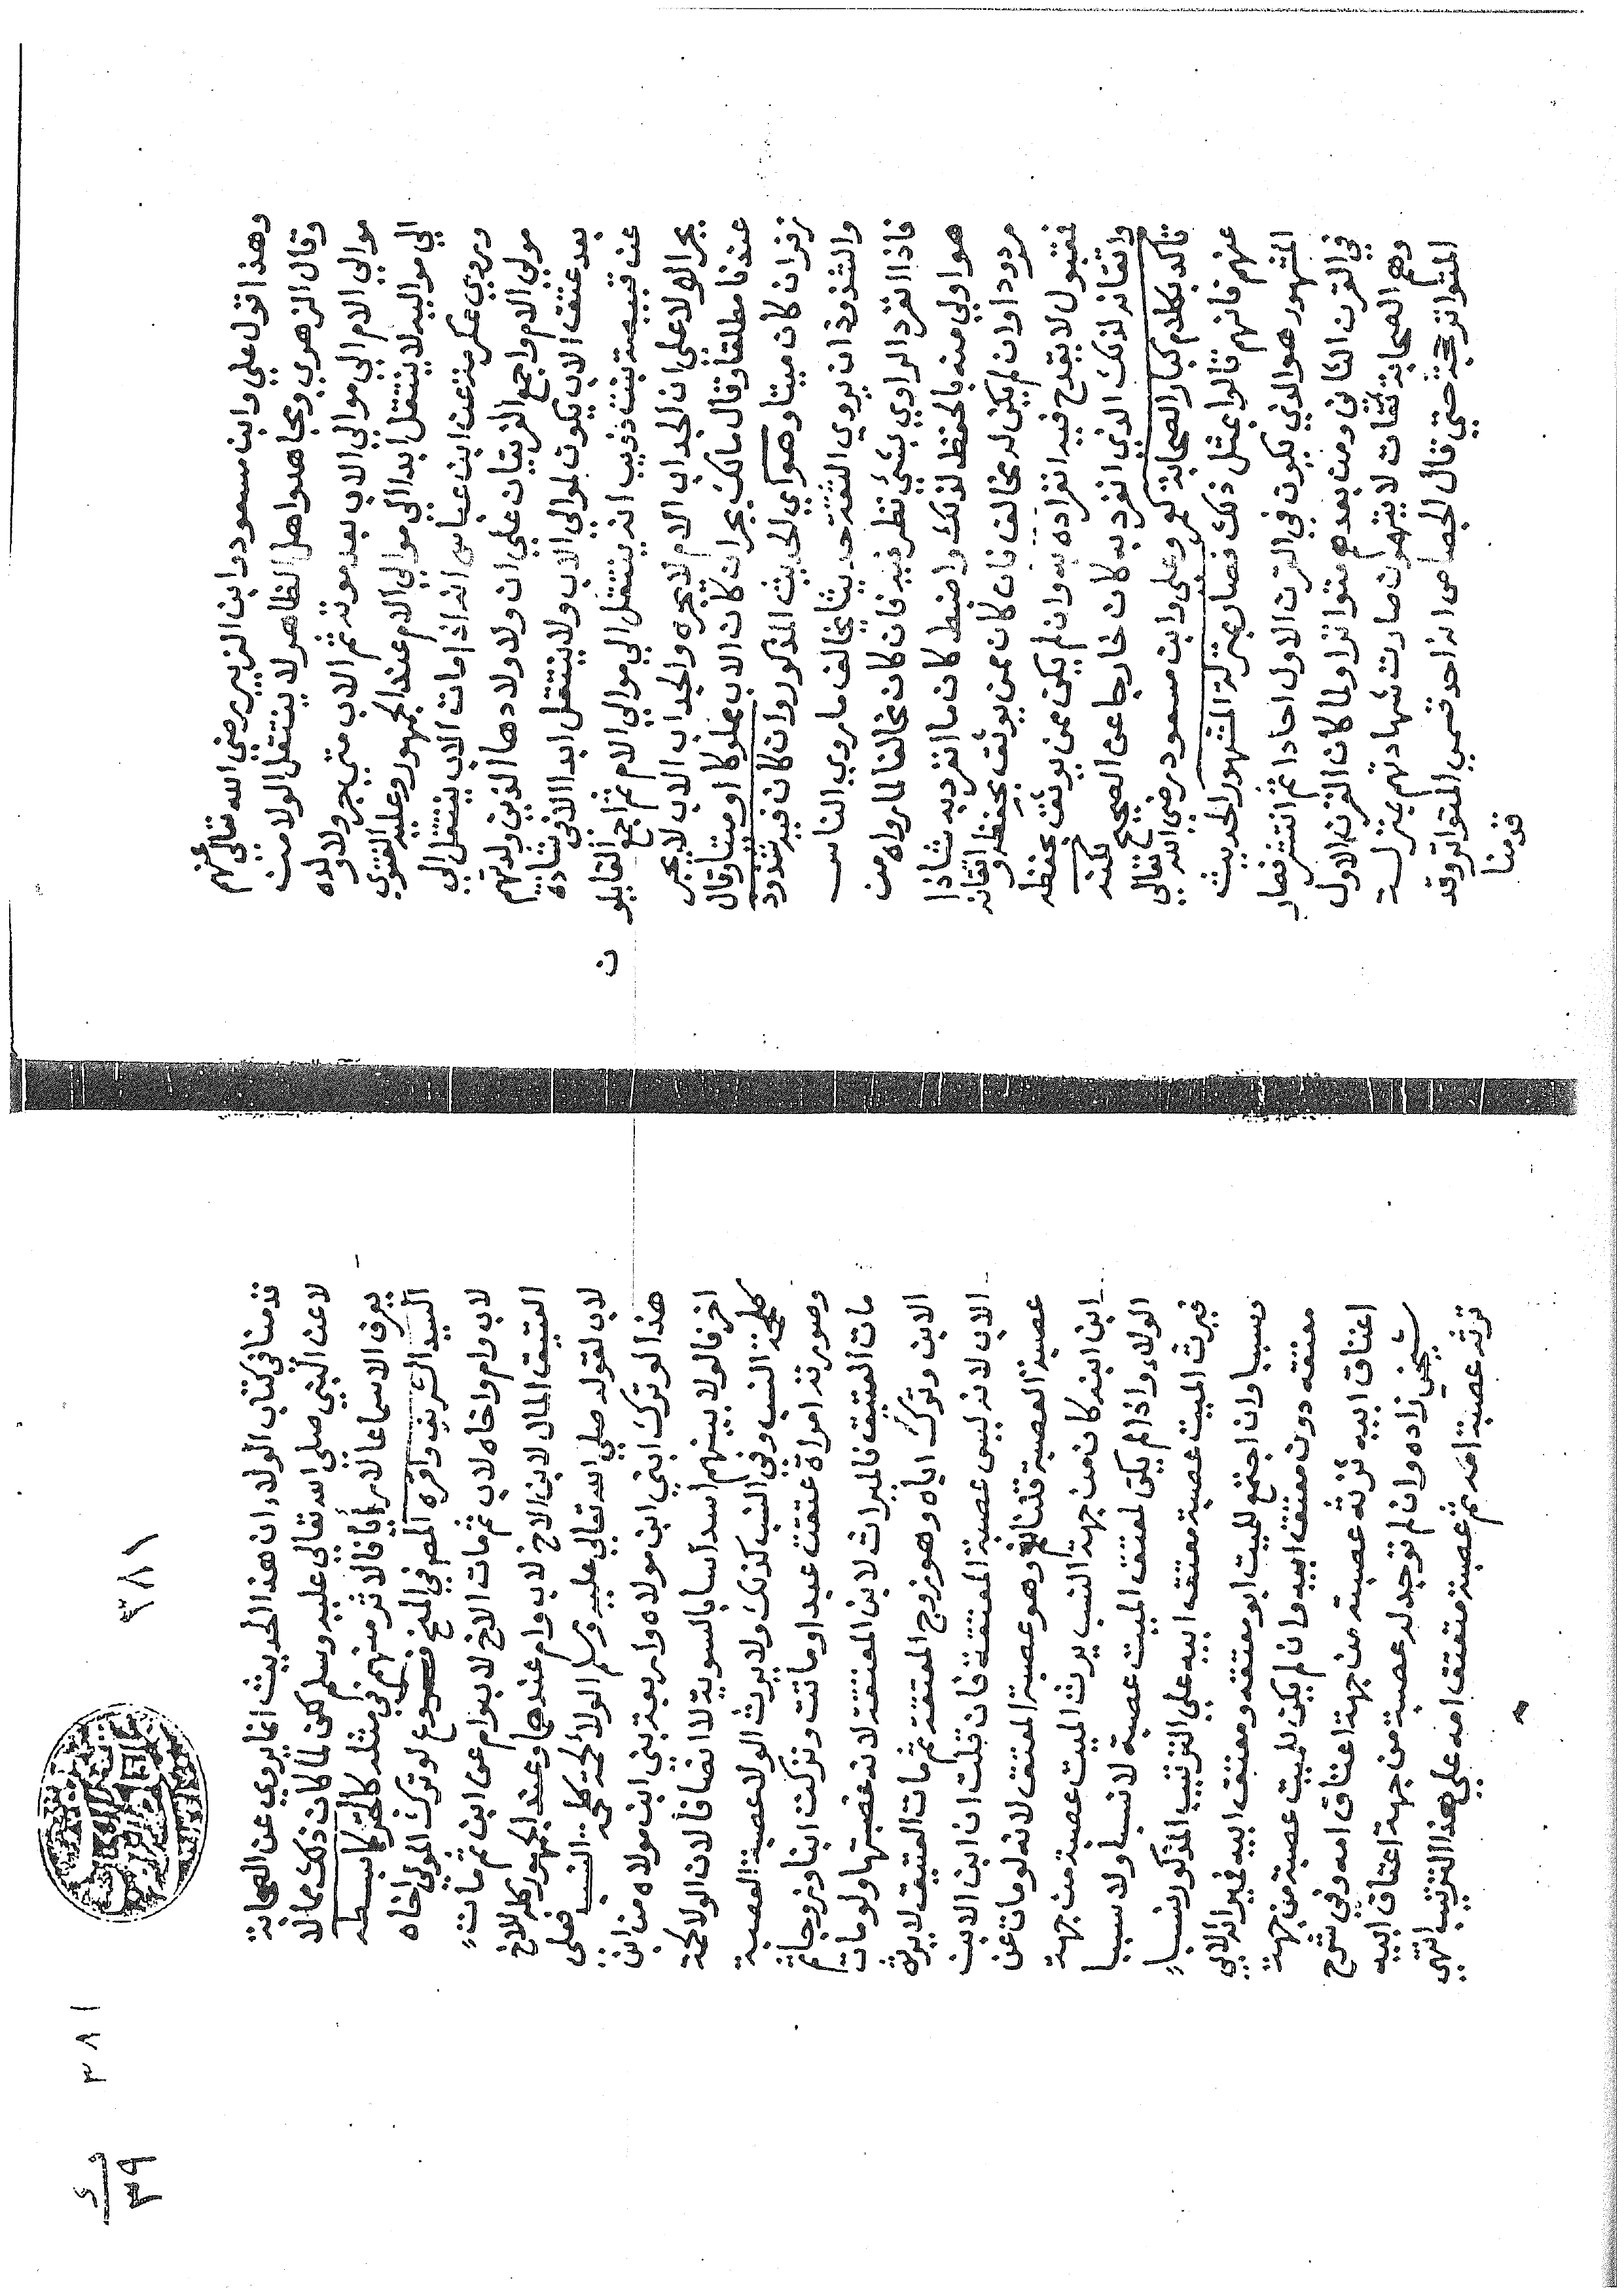 وهذا قول علي وابن مسعود وابن الزبير رضي الله تعالي عنهم
وقال الزهري ومجاهد واهل الظاهر لا ينتقل الولا من
موالي الام الي موالي الاب بعد موته ثم الاب متي جر ولا ولده
الي مواليه لا ينتقل ابدا الي موالي الام عند الجمهور وعليه الفتوي
وروي عكرمة عن ابن عباس انه اذا مات الاب ينتقل الي
موالي الام واجمع الفريقان علي ان ولا ولادها الذين ولدتهم
بعد عتق الاب يكون لموالي الاب ولا ينتقل ابدا الا في شاذه
عن قبيصة بنت ذويب انه ينتقل الي موالي الام ثم اجمع القايلو
ن
بجر الولا علي ان الجد اب الام لا يجره والجد اب الاب لا يجر
عندنا مطلقا وقال مالك يجر ان كان الاب مملوكا او ميتا وقال
زفر ان كان ميتا وهو اي الحديث المذكور وان كان فيه شذوذ
والشذوذ ان يروي الثقة حديثا يخالف ما روي الناس
فاذا انفرد الراوي بشيء نظر فيه فان كان مخالفا لما رواه من
هو اولي منه بالحفظ لذلك واضبط كان ما انفرد به شاذا
مردودا وان لم يكن له مخالف فان كان ممن يوثق بحفظه واتقانه
فمقبول لا يقدح فيه انفراده به وان لم يكن ممن يوثق بحفظه
واتقانه لذلك الذي انفرد به كان خارجا عن الصحيح لكنه
تاكد بكلام كبار الصحابة كعمر وعلي وابن مسعود رضي الله تعالي
عنهم فانهم قالوا بمثل ذلك فصار بمنزلة المشهور الحديث
المشهور هو الذي يكون في القرن الاول احادا ثم انتشر فصار
في القرن الثاني ومن بعدهم متواترا ولما كان القرن الاول
وهم الصحابة ثقات لا يتهمون صارت شهادتهم بمنزلة
المتواتر حجة حتي قال الجصاص انه احد قسمي المتواتر وقد
قدمنا
٣٨١
٣٨١
٣٩
قدمنا في كتاب الولاء ان هذا الحديث انما يروي عن الصحابة
لا عن النبي صلي الله تعالي عليه وسلم لكن لما كان ذلك مما لا
يعرف الا سماعا فالاثر منهم في مثله كالخبر كما بسطه
السيد الشريف واقره المص في المنح فروع لو ترك المولي اخاه
لاب وام واخاه لاب ثم مات الاخ لاب وام عن ابن ثم مات
العتيق المال لابن الاخ لاب وام عندهما وعند الجمهور كله للاخ
لاب لقوله صلي الله تعالي عليه وسلم الولا لحمة كلحمة النسب فعلي
هذا لو ترك ابني ابن مولاه واربعة بني ابن مولاه من ابن
اخر فالولا بينهم اسداسا بالسوية لا انصافا لان الولا لحمة
كلحمة النسب وفي النسب كذلك ولا يرث الولا عصبة العصبة
وصورته امراة عتقت عبدا وماتت وتركت ابنا وزوجا ثم
مات العتيق فالميراث لابن المعتقة لانه عصبتها ولو مات
الابن وترك اباه وهو زوج المعتقة ثم مات العتيق لا يرث
الاب لانه ليس عصبة المعتقة فان قلت ان ابن الابن
عصبة العصبة قلنا نعم وهو عصبة المعتق لانه لو مات عن
ابن ابنه كان من جهة النسب يرث الميت عصبة من جهة
الولاء واذا لم يكن لمعتق الميت عصبة لا نسبا ولا سببا
فيرث الميت عصبة معتق ابيه علي الترتيب المذكور نسبا
وسببا وان اجتمع للميت ابو معتقه ومعتق ابيه فميراثه لابي
معتقه دون معتق ابيه وان لم يكن للميت عصبة من جهة
اعتاق ابيه ترثه عصبة من جهة اعتاق امه وفي شرح
شيخي زاده وان لم توجد له عصبة من جهة اعتاق ابيه
ترثه عصبة امه ثم عصبة معتق امه علي هذا الترتيب انتهي